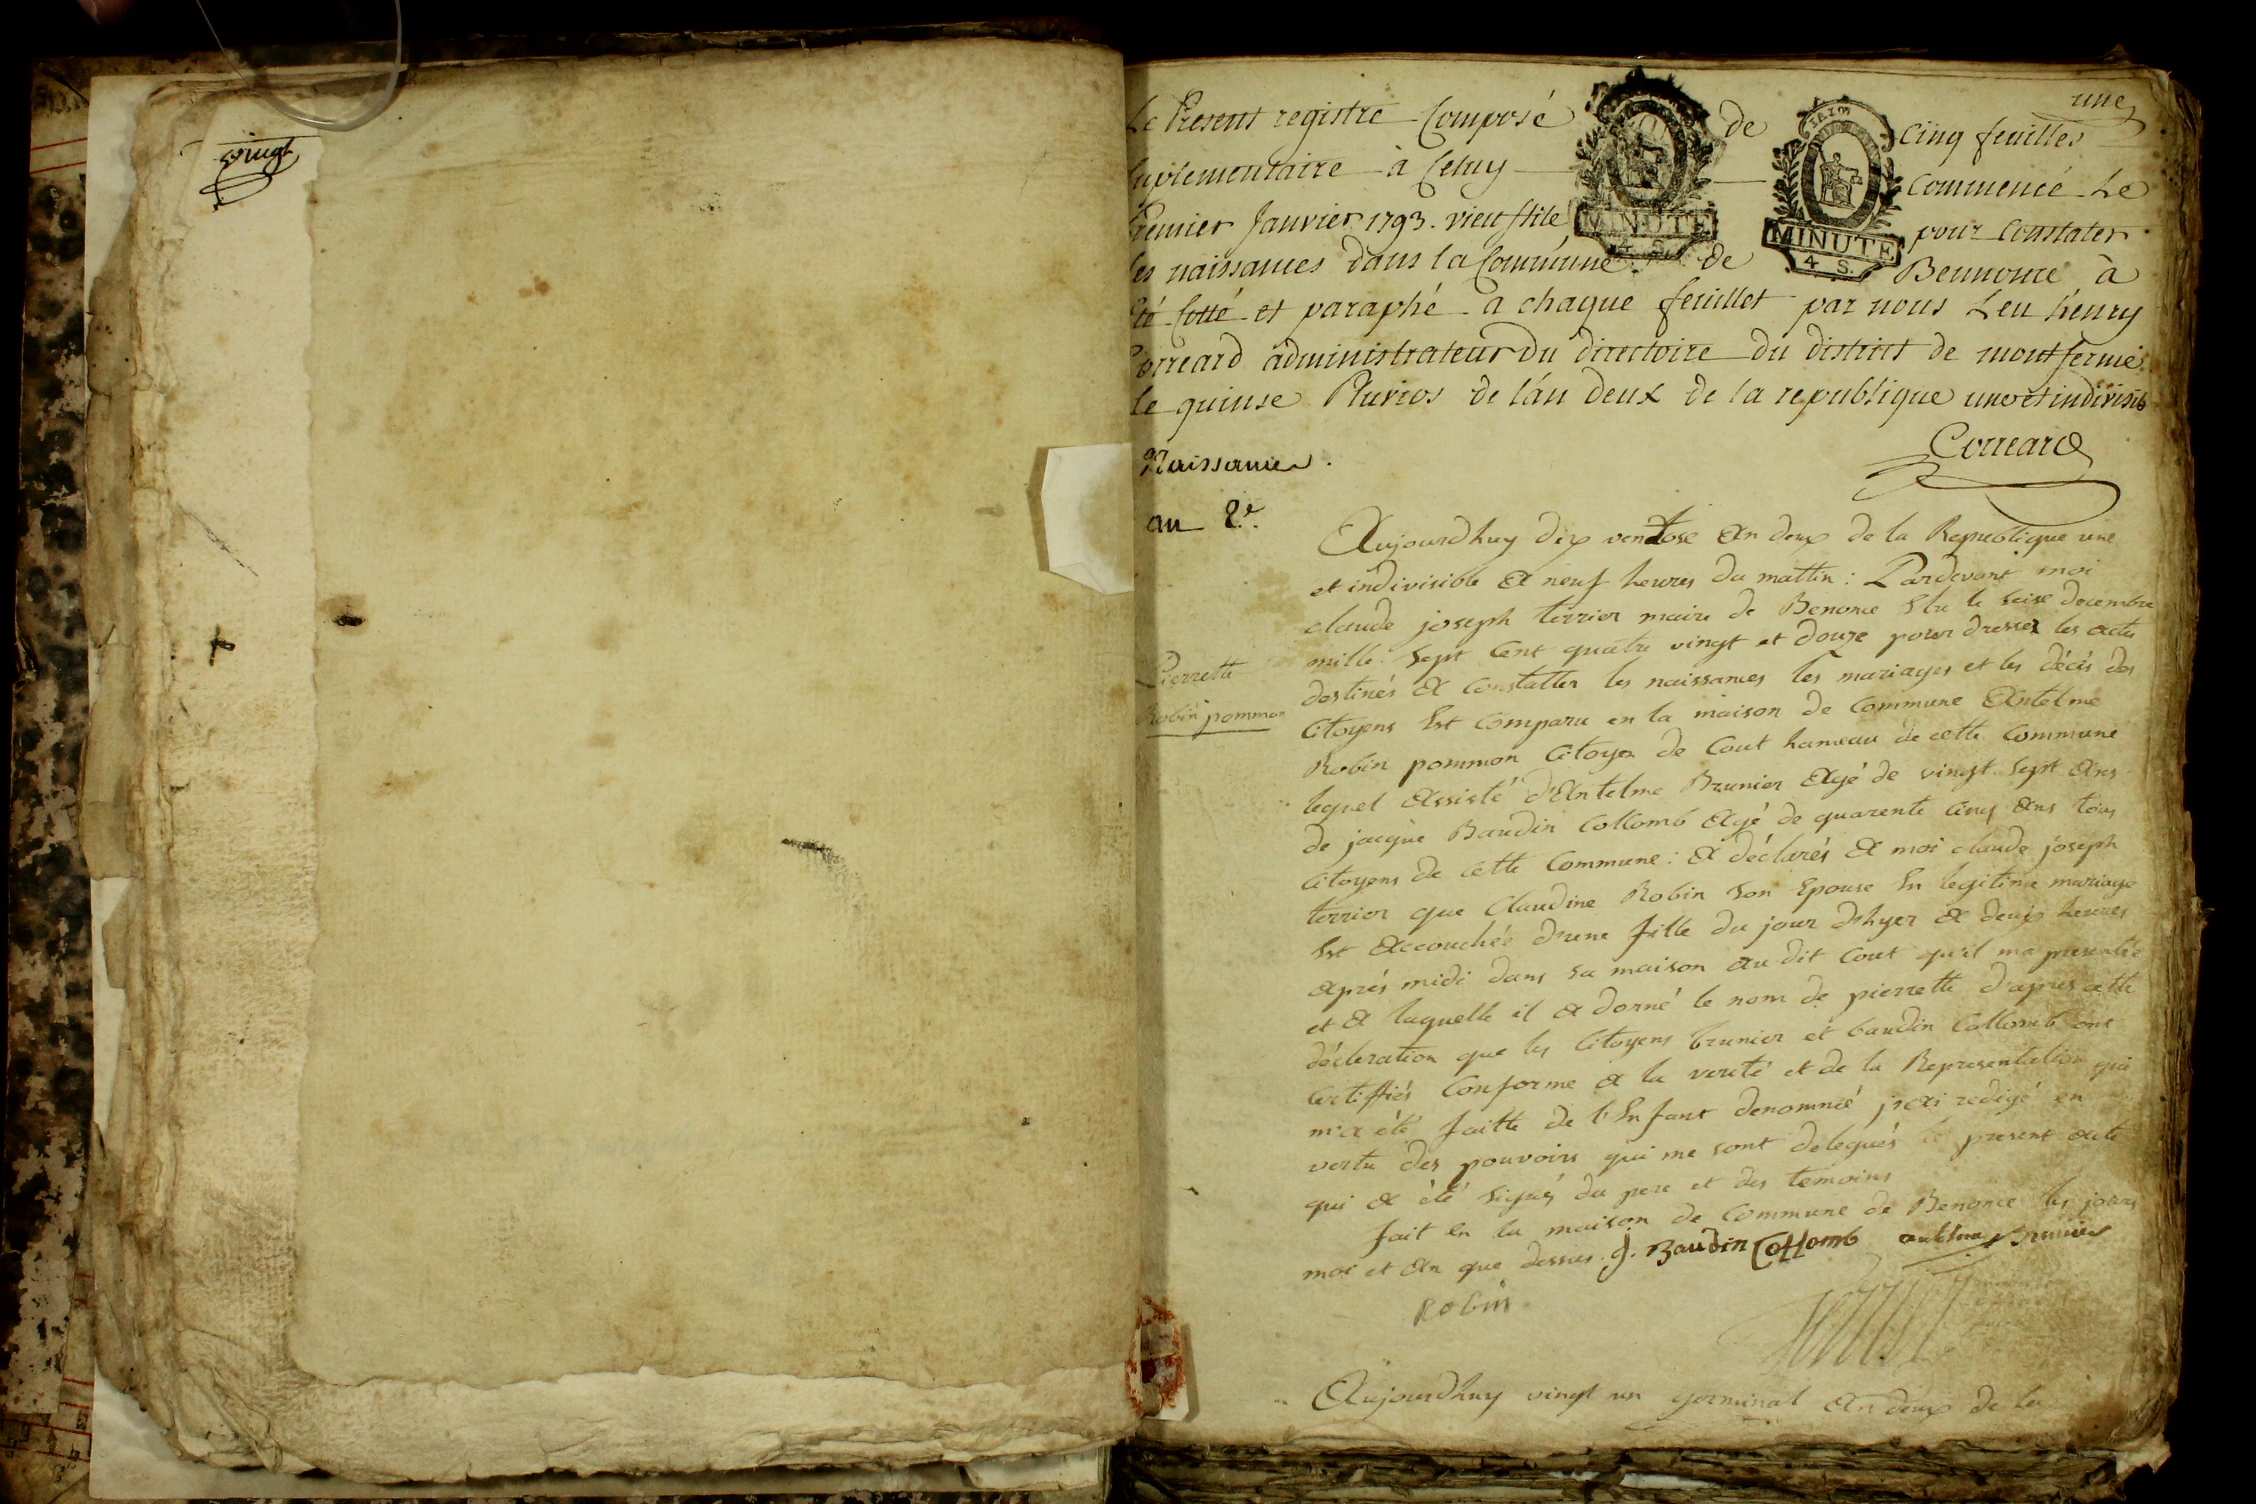 vingt
une
Le Present registre Composé de Cinq feuilles
suplementaire à Celuy commencé Le
Premier Janvier 1793. vieu stile pour Constater
les naissances dans la Commune de Bennonce à
été Cotté et paraphé a chaque feuillet par nous Leu henry
Correard administrateur du directoire du district de montfermé
le quinse Pluvios de l'án deux de la republique une et indivisib
MINUTE
4 S.
MINUTE
4 S.
Correard
Naissances.
an 2e.
Aujourdhuy dix ventose an deux de la Republique une
et indivisible a neuf heures du mattin : Pardevant moi
claude joseph terrier maire de Benonce Elu le seise decembre
mille sept Cent quatre vingt et douze pour dresser les actes
destinés a Constatter les naissances les mariages et les décès des
Citoyens Est Comparu en la maison de Commune Antelme
Pierrette
Robin pommon
Robin pommon Citoyen de Cout hameau de cette Commune
lequel assisté d'Antelme Brunier agé de vingt sept ans
de jacque Baudin Collomb agé de quarente cinq ans tous
Citoyens de cette Commune : a déclarés a moi claude joseph
terrier que Claudine Robin son Epouse En legitime mariage
Est accouchée d'une fille du jour d'hyer a deux heures
après midi dans sa maison au dit Cout qu'il ma presentée
et a laquelle il a donné le nom de pierrette d'apres cette
décleration que les Citoyens brunier et baudin Collomb ont
certiffiés Conforme a la verité et de la Representation qui
m'a été faitte de l'Enfant denommé j'ai redigé en
vertu des pouvoirs qui me sont delegués le present acte
qui a été signés du pere et des temoins
fait en la maison de Commune de Benonce les jours
moi et an que dessus. J. Baudin Collomb antelme Brunier
Robin
terrier
Aujourdhuy vingt un germinal an deux de la